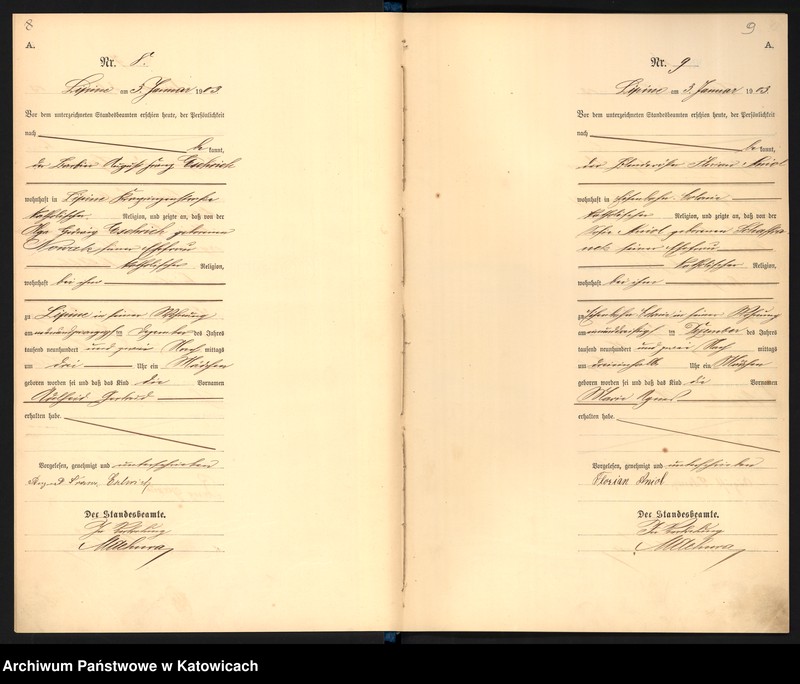 8
A.
Nr. 8.
Lipine am 3. Januar 1903.
Vor dem unterzeichneten Standesbeamten erschien heute, der Persönlichkeit
nach
be kannt,
der August Franz
wohnhaft in Lipine
katholischer Religion, und zeigte an, daß von der
Olga Hedwig geborenen
Nowak seiner Ehefrau
katholischer Religion,
wohnhaft bei ihm
zu Lipine in seiner Wohnung
am im Dezember des Jahres
tausend neunhundert und zwei Nach mittags
um drei Uhr ein Mädchen
geboren worden sei und daß das Kind die Vornamen
Adelheid Gertrud
erhalten habe.
Vorgelesen, genehmigt und unterschrieben
August Franz
Der Standesbeamte.
In Vertretung
9
A.
Nr. 9
Lipine am 3. Januar 1903.
Vor dem unterzeichneten Standesbeamten erschien heute, der Persönlichkeit
nach
be kannt,
der Florian Aniol
wohnhaft in Colonie
katholischer Religion, und zeigte an, daß von der
Aniol geborenen
seiner Ehefrau
katholischer Religion,
wohnhaft bei ihm
zu Colonie in seiner Wohnung
am einunddreißigsten im Dezember des Jahres
tausend neunhundert und zwei Nach mittags
um Uhr ein Mädchen
geboren worden sei und daß das Kind die Vornamen
Marie Agnes
erhalten habe.
Vorgelesen, genehmigt und unterschrieben
Florian Aniol
Der Standesbeamte.
In Vertretung
Archiwum Państwowe w Katowicach